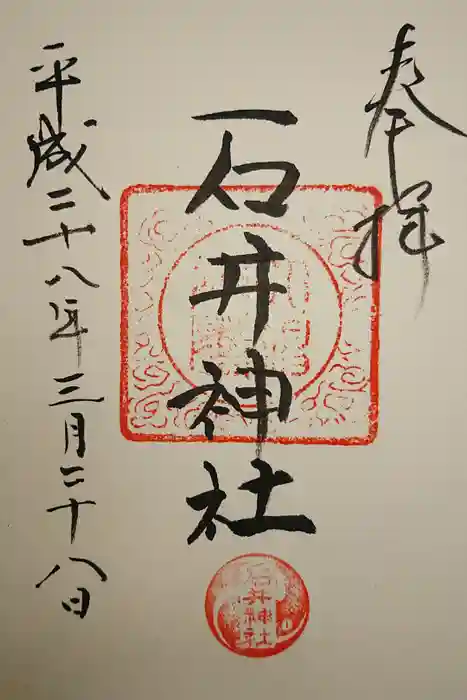 奉拝
石井神社
平成二十八年三月二十八日
石井
神社